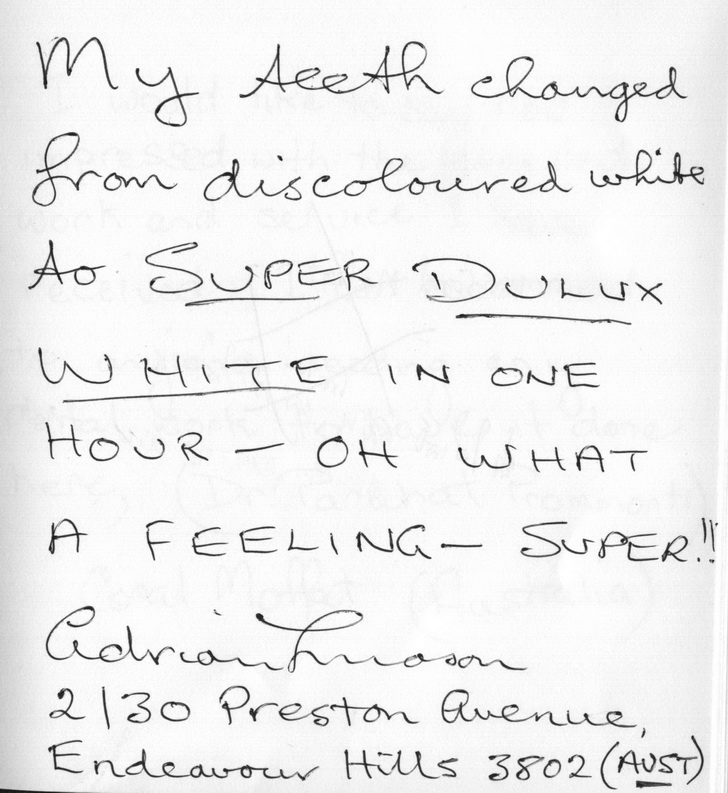 My teeth changed
from discoloured white
to SUPER DULUX
WHITE IN ONE
HOUR – OH WHAT
A FEELING – SUPER!!
Adrian
2/30 Preston Avenue,
Endeavour Hills 3802 (AUST)